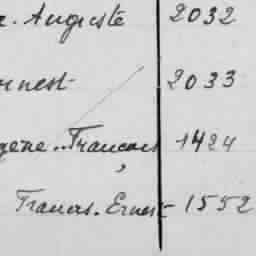 r. Auguste 2032
rnest 2033
gene. Francois 1424
Francs. Ernest 1552